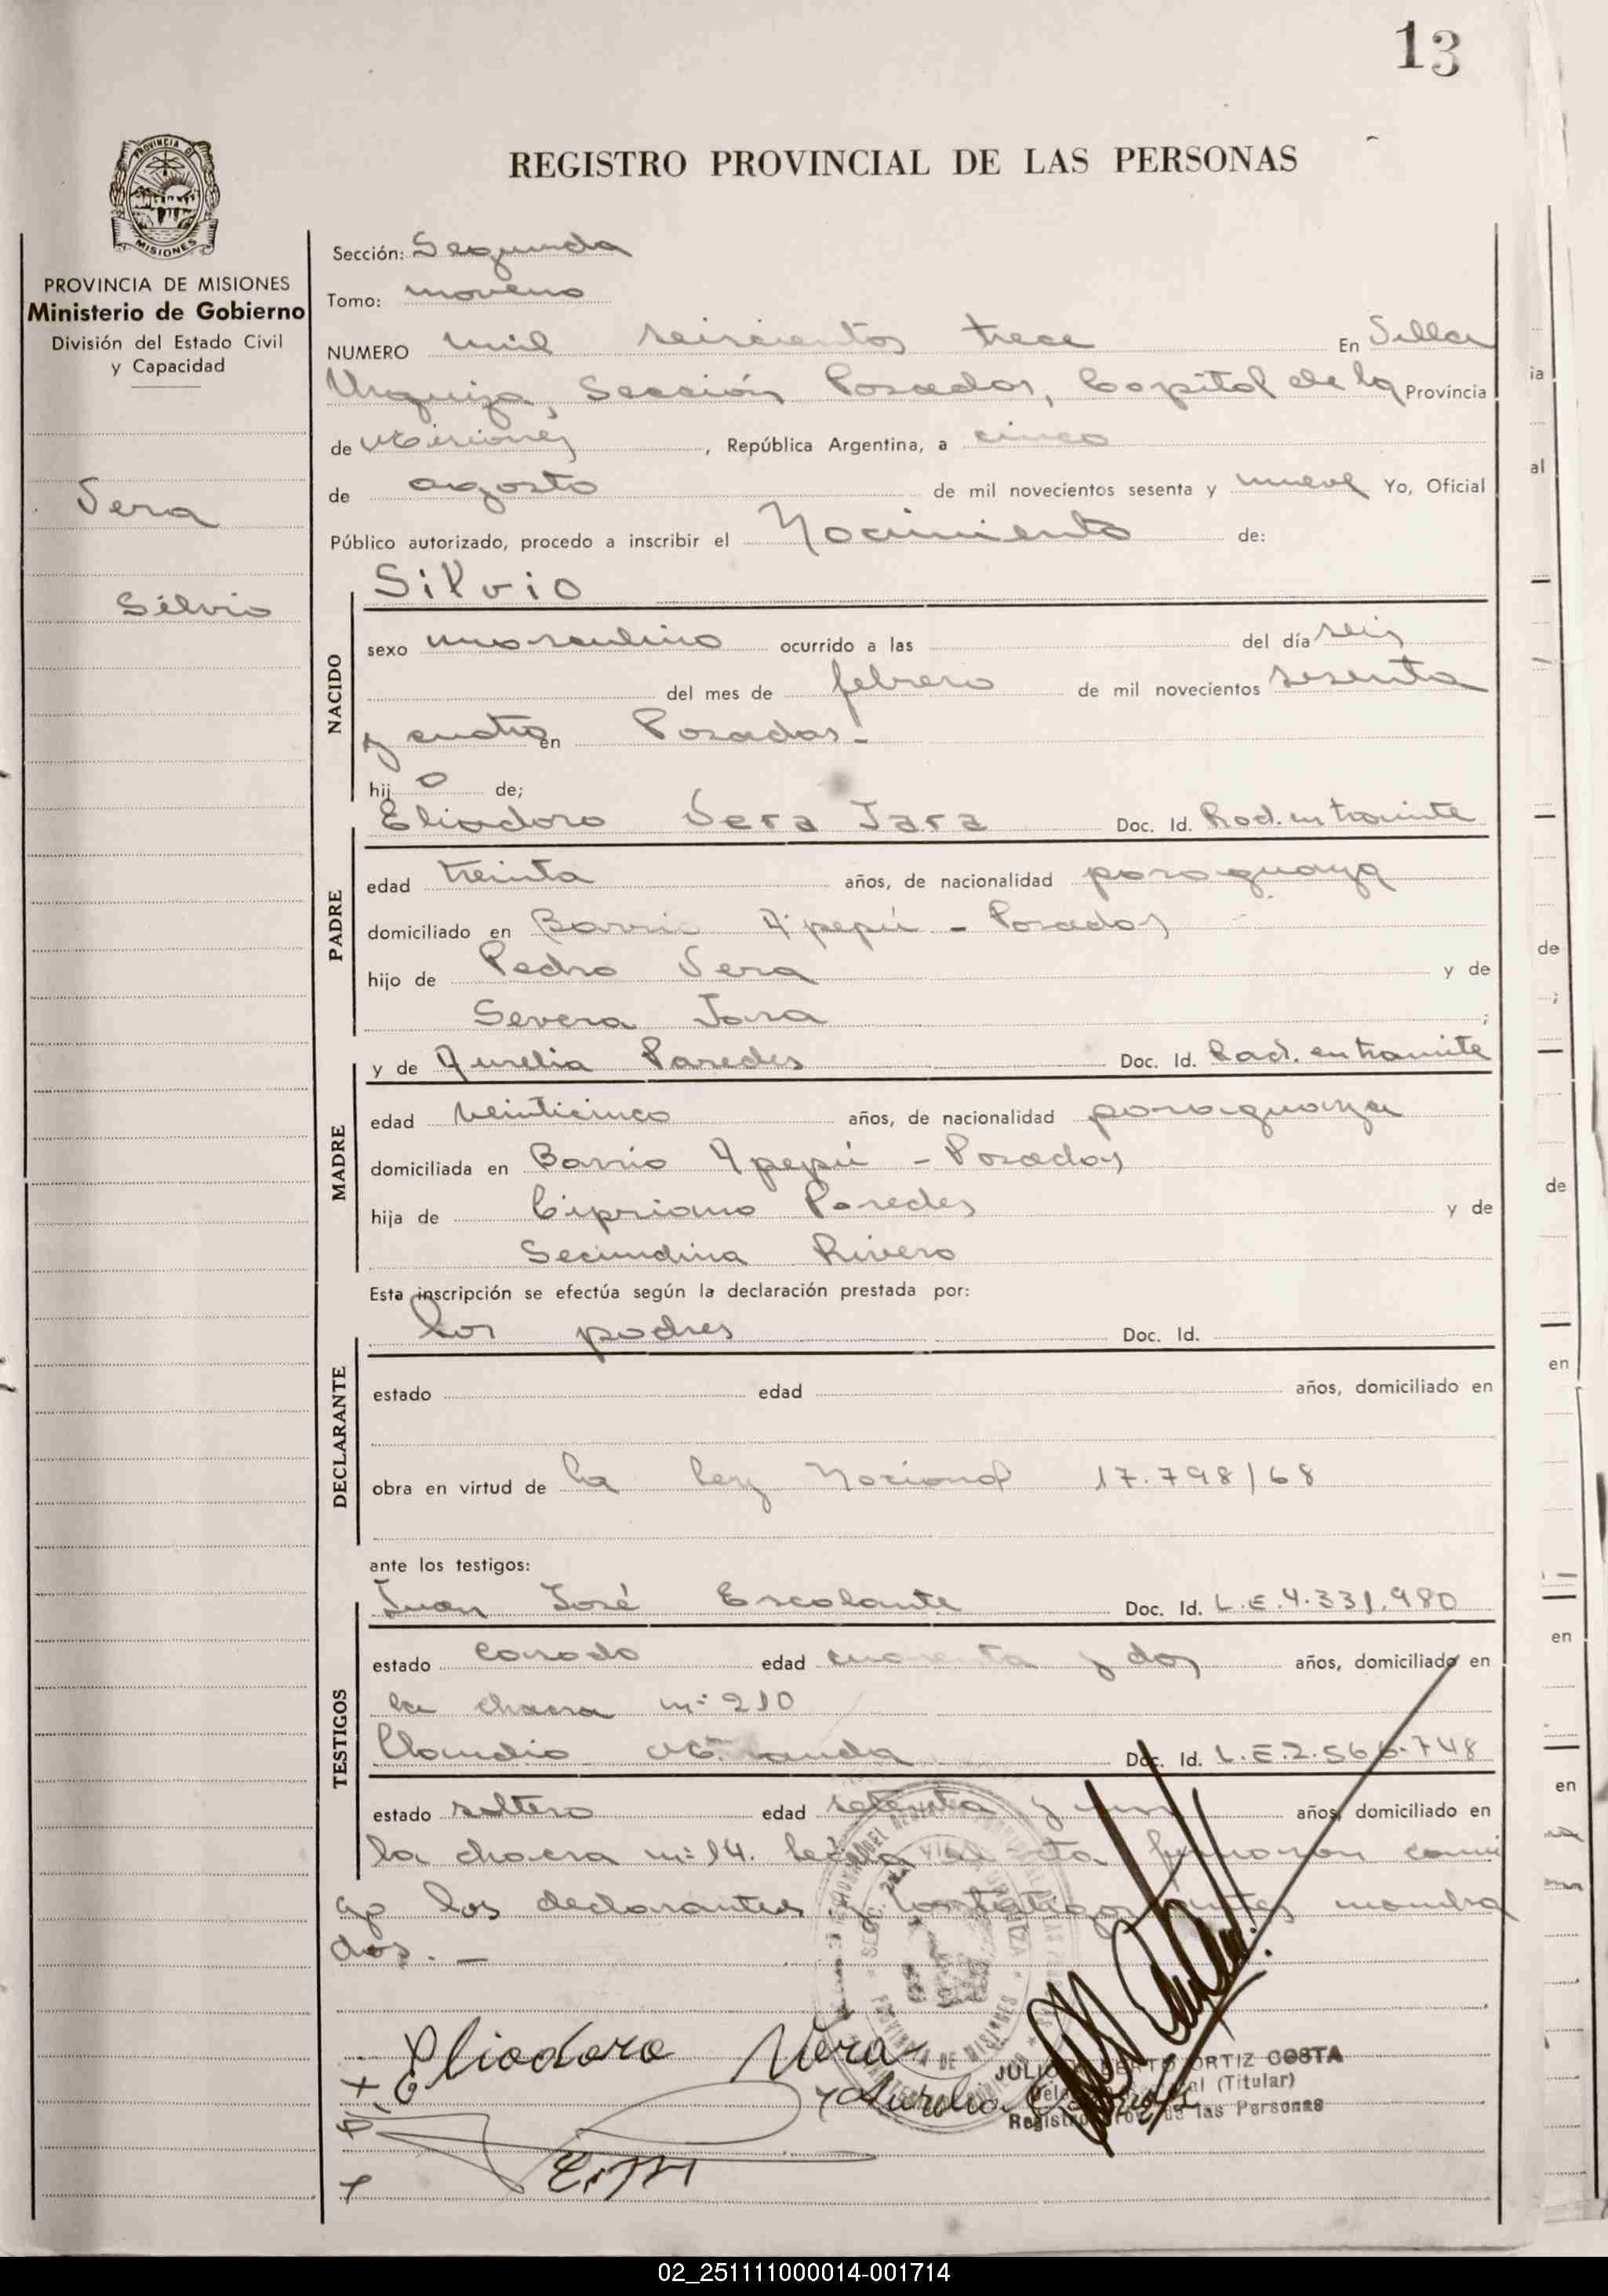 13
REGISTRO PROVINCIAL DE LAS PERSONAS
PROVINCIA DE
MISIONES
PROVINCIA DE MISIONES
Ministerio de Gobierno
División del Estado Civil
y Capacidad
Vera
Silvio
Sección: Segunda
Tomo: noveno
NUMERO mil seiscientos trece En Villa
Urquiza, Sección Posadas, Capital de la Provincia
de Misiones, República Argentina, a cinco
de agosto de mil novecientos sesenta y nueve Yo, Oficial
Público autorizado, procedo a inscribir el Nacimiento de:
Silvio
NACIDO
sexo masculino ocurrido a las del día seis
del mes de febrero de mil novecientos sesenta
y cuatro en Posadas.-
hijo de;
Eliodoro Vera Jara Doc. Id. Rad. en tramite
PADRE
edad treinta años, de nacionalidad paraguaya
domiciliado en Barrio Apepú - Posadas
hijo de Pedro Vera y de
Severa Jara ;
y de Aurelia Paredes Doc. Id. Rad. en tramite
MADRE
edad veinticinco años, de nacionalidad paraguaya
domiciliada en Barrio Apepú - Posadas
hija de Cipriano Paredes y de
Secundina Rivero
Esta inscripción se efectúa según la declaración prestada por:
los padres Doc. Id.
DECLARANTE
estado edad años, domiciliado en
obra en virtud de la ley Nacional 17.798/68
ante los testigos:
Juan José Escalante Doc. Id. L.E.4.331.980
TESTIGOS
estado casado edad cuarenta y dos años, domiciliado en
la chacra nº 210
Claudio Miranda Doc. Id. L.E.2.566.748
estado soltero edad setenta y un años, domiciliado en
la chacra nº 14. Leída acta firmaron conmi
go los declarantes y los testigos antes nombra
dos.-
Eliodoro Vera
Aurelia
JULIO ORTIZ COSTA
(Titular)
Registro las Personas
PROVINCIA DE MISIONES
02_251111000014-001714